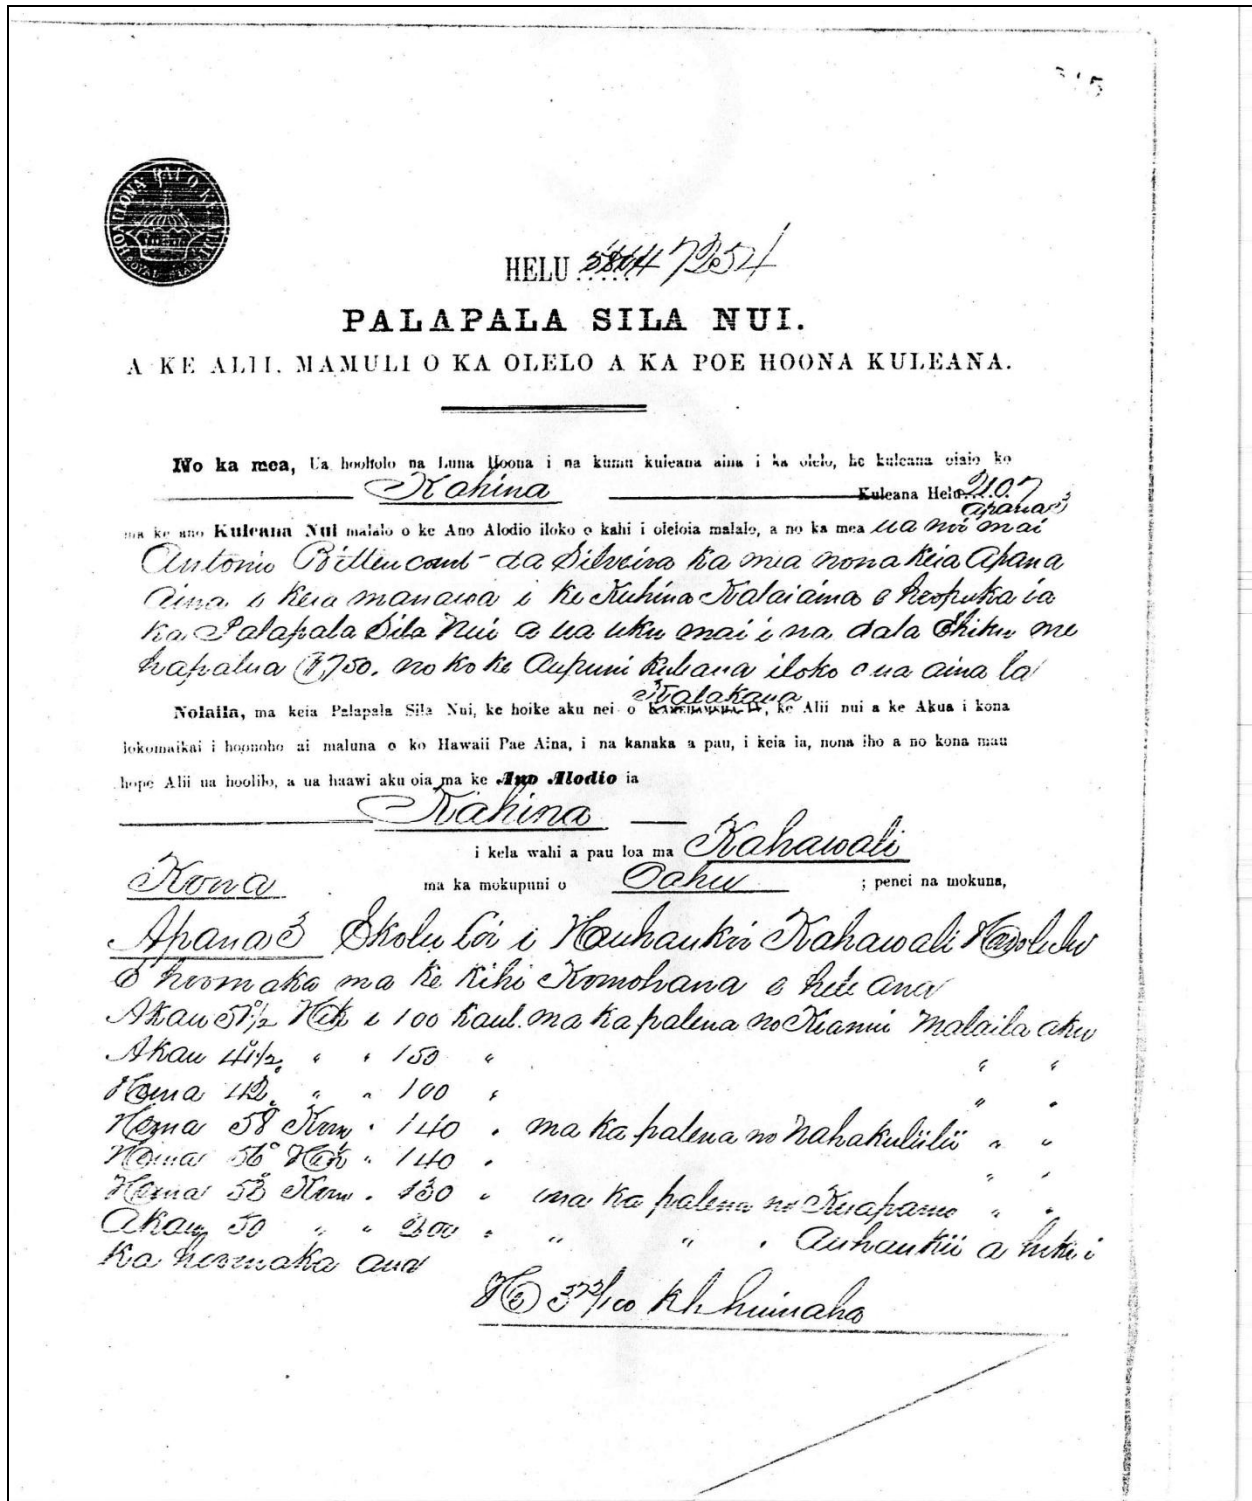 HELU 7254
PALAPALA SILA NUI.
A KE ALII, MAMULI O KA OLELO A KA POE HOONA KULEANA.
No ka mea, Ua hooholo na Luna Hoona i na kumu kuleana aina i ka olelo, he kuleana oiaio ko
Kahina Kuleana Helu 2107
Apana 3
ma ke ano Kuleana Nui malalo o ke Ano Alodio iloko o kahi i oleloia malalo, a no ka mea ua noi mai
Antonio da Silveira ka mea nona keia Apana
Aina i keia manawa i ke Kuhina Kalaiaina e hoopuka ia
ka Palapala Sila Nui a ua uku mai i na dala Ehiku me
hapalua $7,50. no ko ke Aupuni Kuleana iloko o ua aina la
Kalakaua
Nolaila, ma keia Palapala Sila Nui, ke hoike aku nei o KAMEHAMEHA IV, ke Alii nui a ke Akua i kona
lokomaikai i hoonoho ai maluna o ko Hawaii Pae Aina, i na kanaka a pau, i keia la, nona iho a no kona mau
hope Alii ua hoolilo, a ua haawi aku oia ma ke Ano Alodio ia
Kahina
i kela wahi a pau loa ma Kahawali
Kona ma ka mokupuni o Oahu ; penei na mokuna,
Apana 3 Ekolu loi i Kahawali
E hoomaka ma ke kihi Komohana e hele ana
Akau 51½° Hik i 100 kaul. ma ka palena no Malaila aku
Akau 41½° " " 150 " " "
Hema 42° " " 100 " " "
Hema 58° Kom " 140 " ma ka palena no Nahakuliilii " "
Hema 56° Hik " 140 " " "
Hema 53° Kom " 130 " ma ka palena no Kuapanio " "
Akau 50 " " 200 " " " " Auhaukii a hiki i
ka hoomaka ana